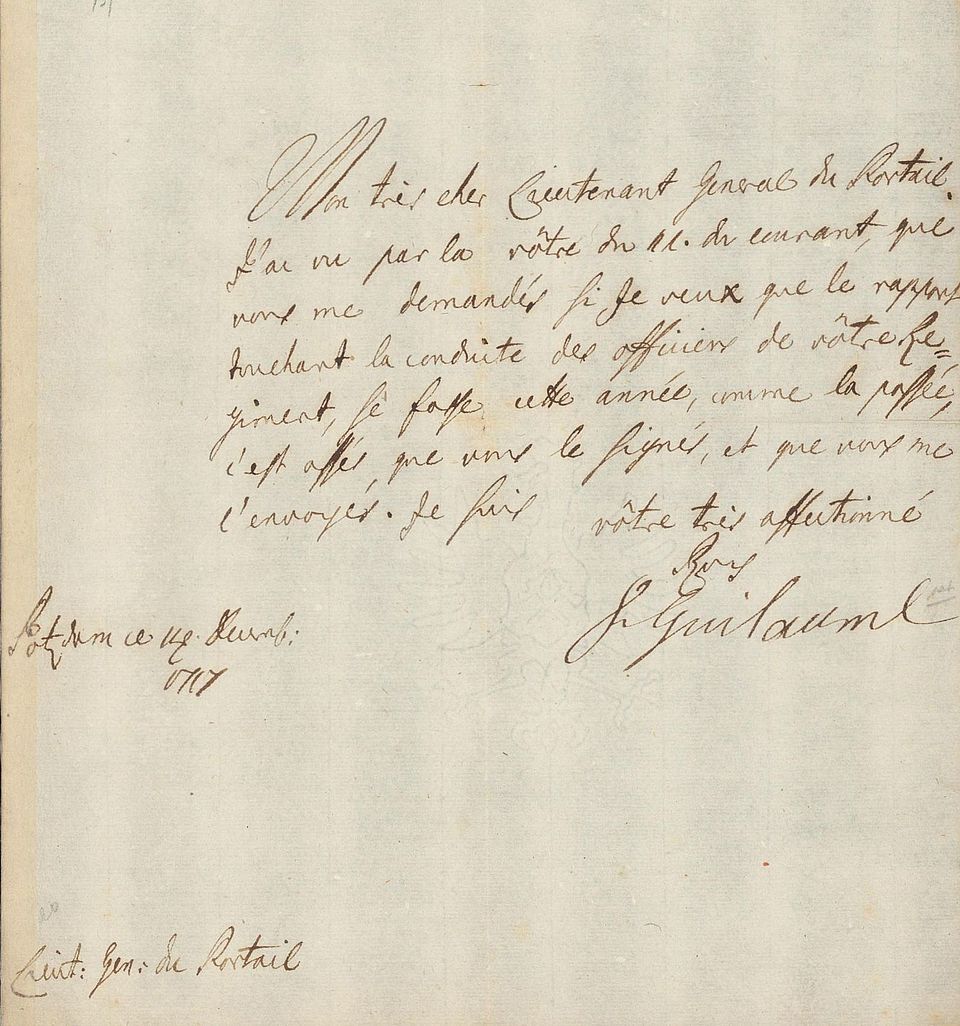 Mon très cher Lieutenant General du Portail.
J'ai vu par la vôtre du 11. du courant, que
vous me demandés si Je veux que le rapport
touchant la conduite des officiers de vôtre Re=
giment, se fasse cette année, comme la passée,
c'est assés, que vous le signés, et que vous me
l'envoyés. Je suis vôtre très affectionné
Roy
F Guillaume
Potzdam ce 14e. Decemb:
1717
Lieut: Gen: du Portail